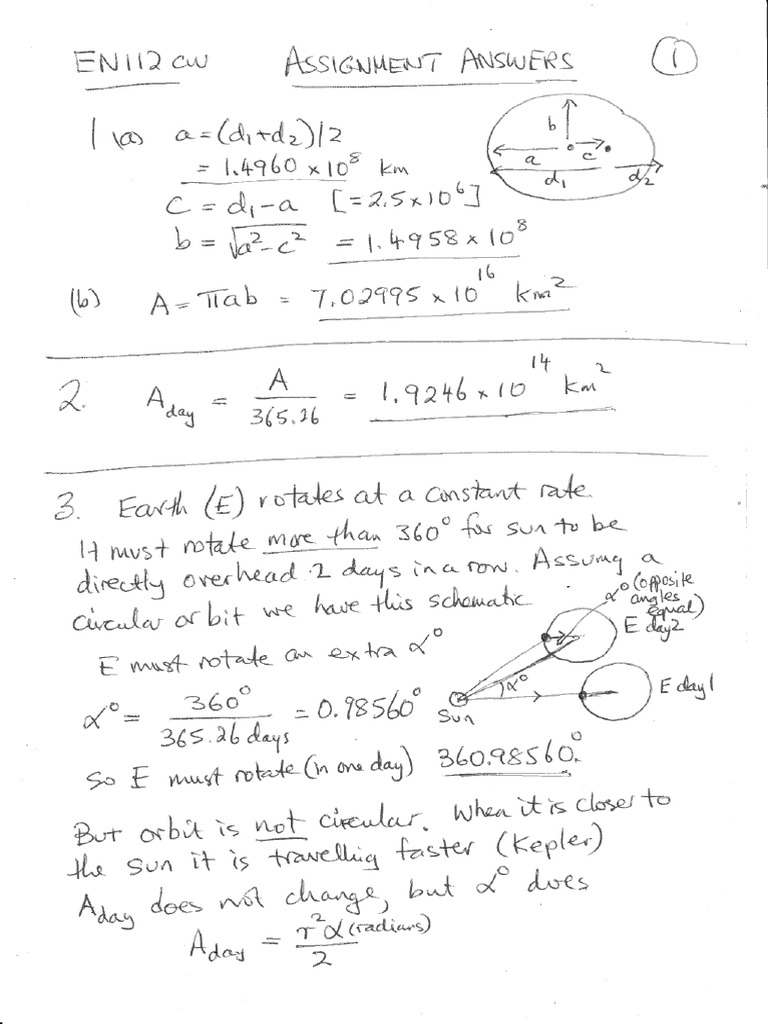 EN112 CW ASSIGNMENT ANSWERS ①
1 (a) a = (d₁+d₂)/2
= 1.4960 × 10⁸ km
c = d₁ - a [= 2.5 × 10⁶]
b = √a² - c² = 1.4958 × 10⁸
b
a c
d₁ d₂
(b) A = πab = 7.02995 × 10¹⁶ km²
2. A_day = A / 365.26 = 1.9246 × 10¹⁴ km²
3. Earth (E) rotates at a constant rate.
It must rotate more than 360° for sun to be
directly overhead 2 days in a row. Assuming a
circular orbit we have this schematic
α° (opposite
angles
equal)
E day2
E must rotate an extra α°
α°
E day1
Sun
α° = 360° / 365.26 days = 0.98560°
So E must rotate (in one day) 360.98560°.
But orbit is not circular. When it is closer to
the sun it is travelling faster (Kepler)
A_day does not change, but α° does
A_day = r²α (radians) / 2